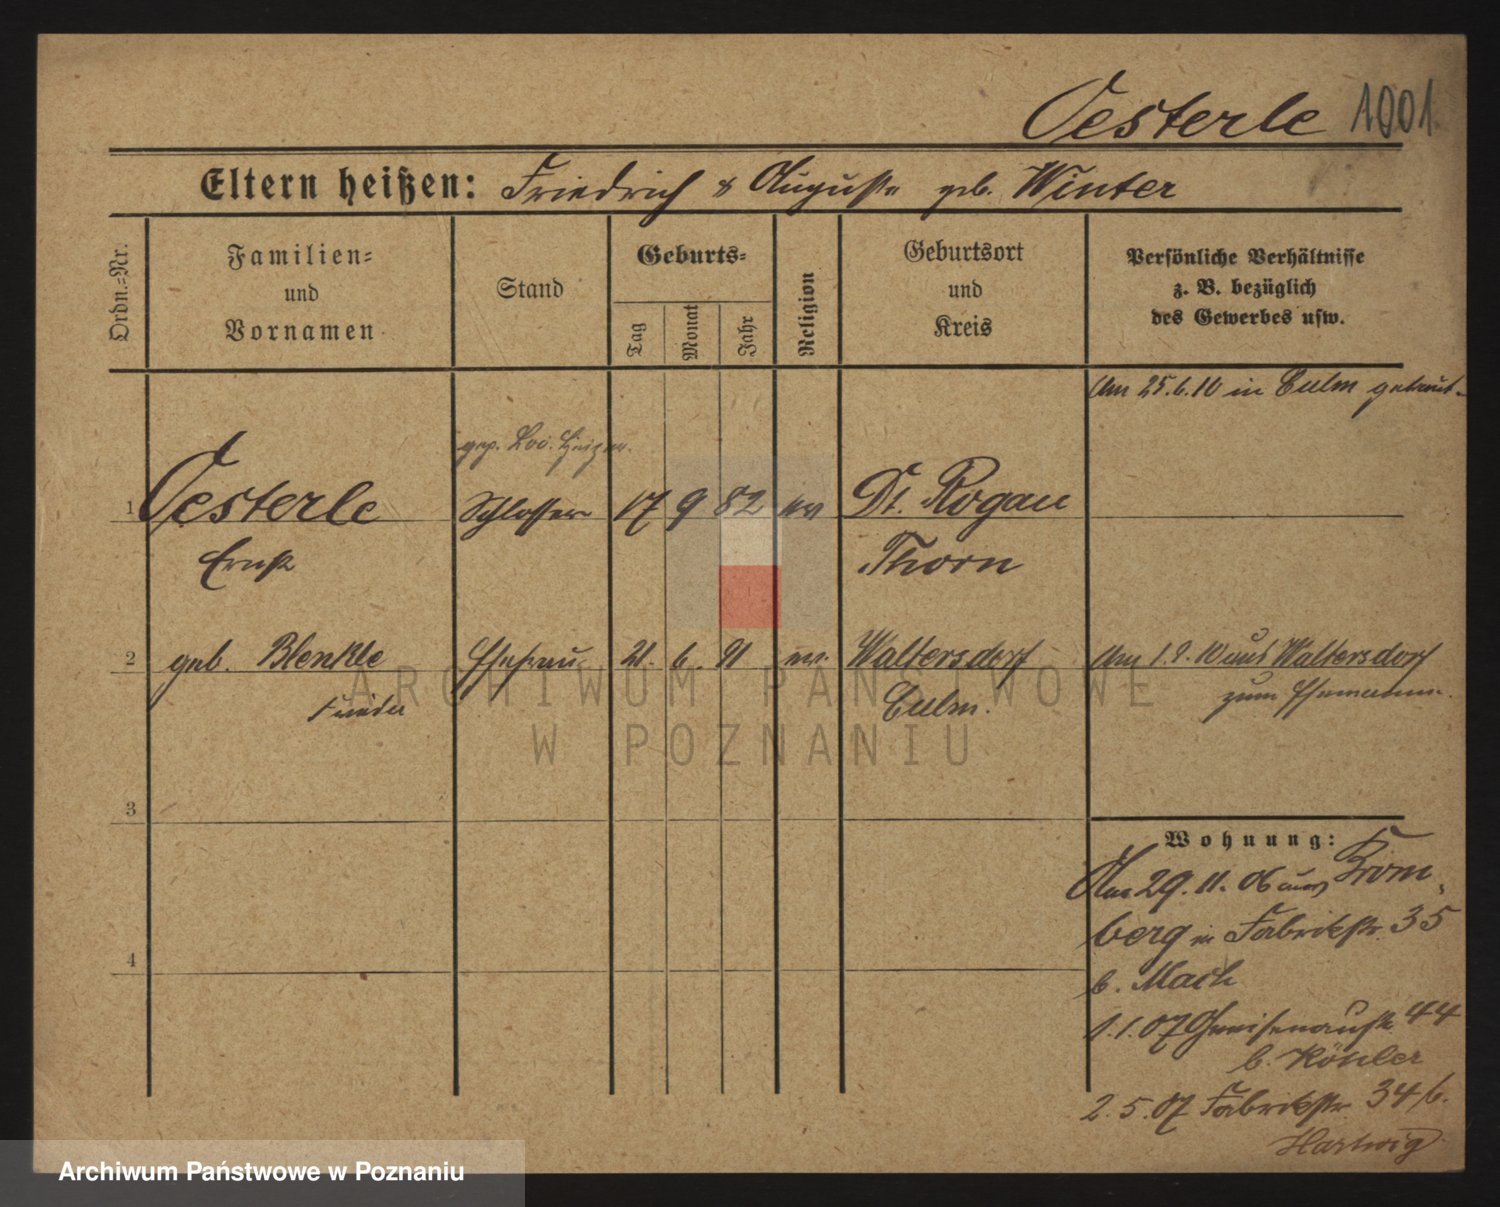 Oesterle 1901.
Eltern heißen: Friedrich & Auguste geb. Winter
Ordn.=Nr.
Familien=
und
Vornamen
Stand
Geburts=
Tag
Monat
Jahr
Religion
Geburtsort
und
Kreis
Persönliche Verhältnisse
z. B. bezüglich
des Gewerbes usw.
Am 25.6.10 in Culm getraut.
gep. Heizer
1 Oesterle Schlosser 17 9 82 ev D. Rogau
Ernst Thorn
2 geb. Blenkle Ehefrau 21. 6. 91 ev. Waltersdorf Am 1.9.10 aus Waltersdorf
Culm. zum Ehemann.
3
4
Wohnung:
Am 29.11.06 aus Brom
berg in Fabrikstr. 35
b. Mach
1.1.07 Gneisenaustr. 44
b. Köhler
2.5.07 Fabrikstr. 34 b.
Hartwig
ARCHIWUM PAŃSTWOWE
W POZNANIU
Archiwum Państwowe w Poznaniu